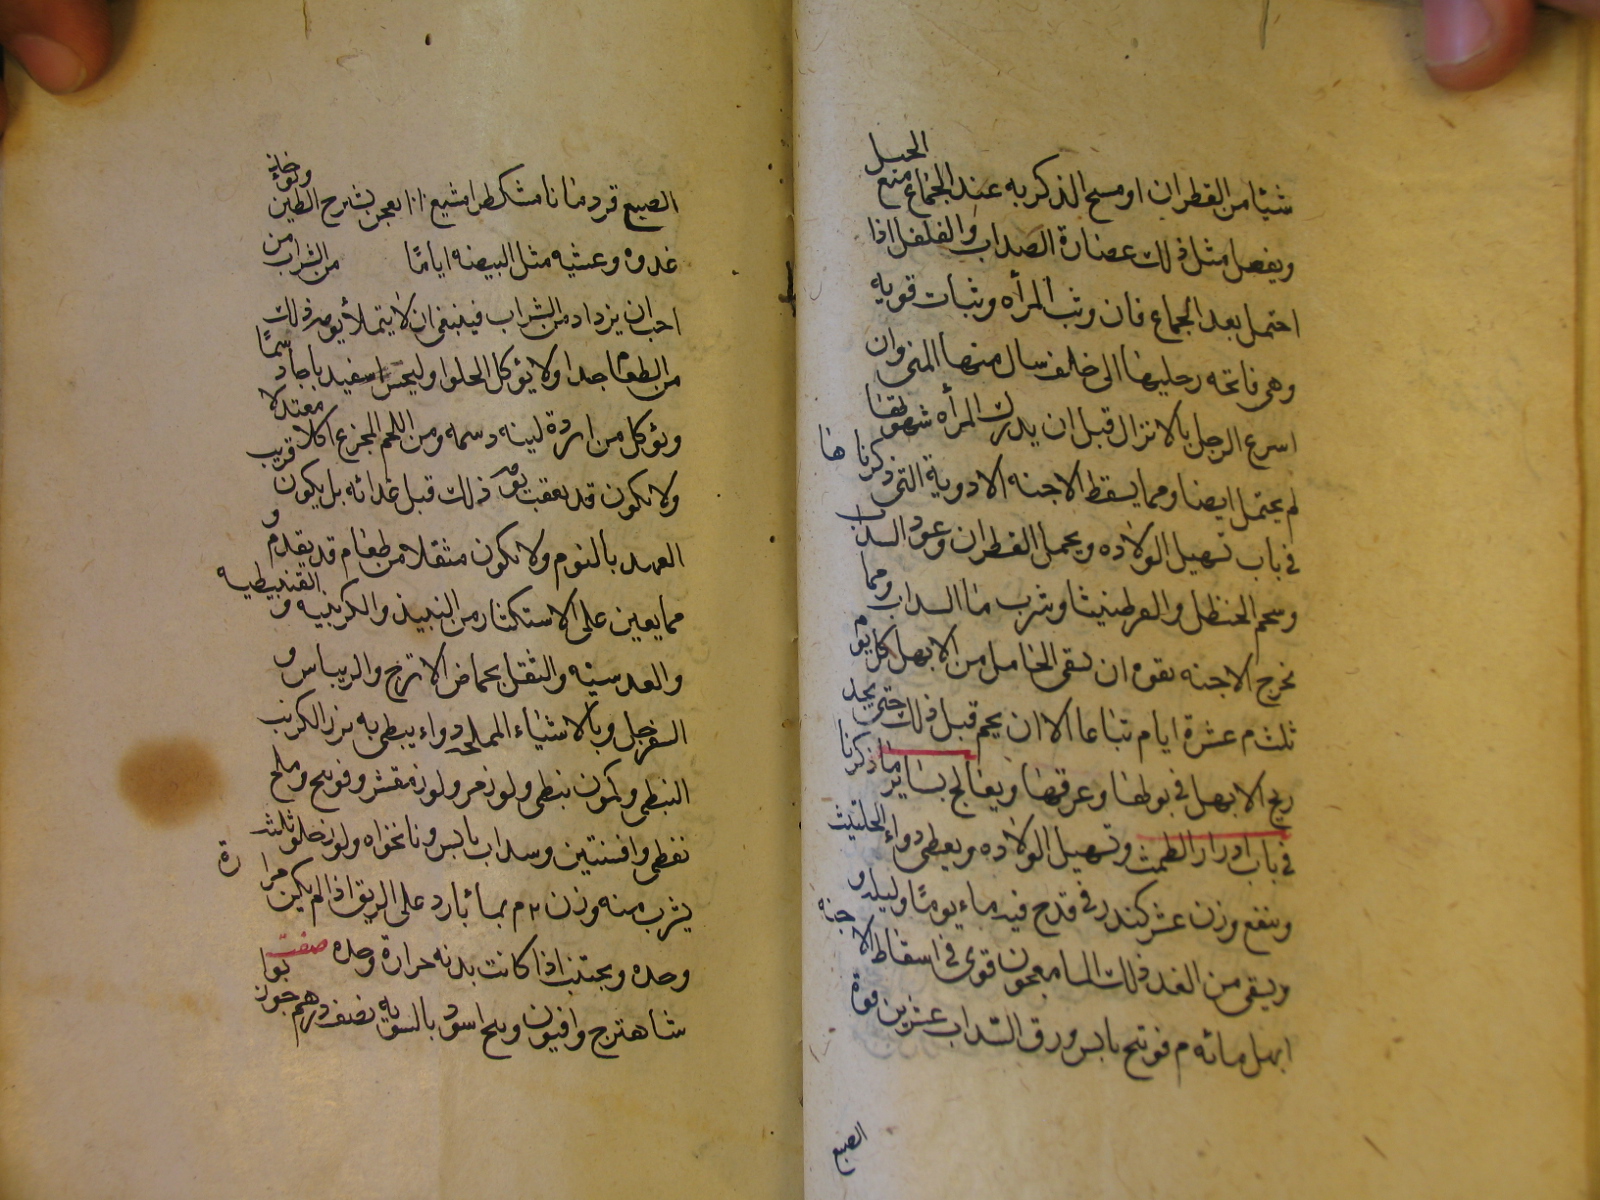 شيئا من القطران او مسح الذكر به عند الجماع منع الحبل
ويفصل مثل ذلك عصارة الصداب والفلفل اذا
احتمل بعد الجماع فان وثبت المرأه وثبات قويه
وهى فاتحه رجليها الى خلف سال منها المنى وان
اسرع الرجل بالانزال قبل ان يدرك المرأه شهوتها
لم يحتمل ايضا ومما يسقط الاجنه الادوية التى ذكرناها
فى باب تسهيل الولاده ويحمل القطران وعود السداب
وشحم الحنظل والعرطنيثا وشرب ماء السداب ومما
يخرج الاجنه بقوه ان تسقى الحامل من الابهل كل يوم
ثلث م عشرة ايام تباعا الا ان يحم قبل ذلك حتى يجد
ريح الابهل فى بولها وعرقها ويعالج بسائر ما ذكرنا
فى باب ادرار الطمث وتسهيل الولاده ويعطى دواء الحلتيث
وينقع وزن عشر كندر فى قدح فيه ماء يوما وليله و
ويسقى من الغد ذلك الماء معجون قوى فى اسقاط الاجنه
ابهل مائه م فوتنج يابس ورق السداب عشرين فوة
الصبع
الصبع قردمانا مشكطرامشيع ا ا ا يعجن بشيرج الطين
غدوه وعشيه مثل البيضه اياما من الشراب من
احب ان يزداد من الشراب فينبغى ان لا يتملأ يوم ذلك
من الطعام جدا ولا يؤكل الحلوا اسفيدباجا دسما
ويؤكل من لينه دسمه ومن اللحم المجزع اكلا معتدلا
ولا يكون قد ذلك قبل غدائه بل يكون قريب
العهد بالنوم ولا يكون مثقلا من طعام قد يقدم و
مما يعين على الاستكثار من النبيذ والكرنبيه و القنبيطيه
والعدسيه والتنقل بحماض الاترج والريباس و
السفرجل وبالاشياء المملحه دواء يبطى به بزر الكرنب
النبطى وكمون نبطى ولوز مر ولوز مقشر وفوتنج وملح
نفطى وافسنتين وسداب يابس ونانخواه ولوز حلو ثلث
يشرب منه وزن ٢ م بماء بارد على الريق اذا لم يكن مرارة
وحده ويجتنب اذا كانت بدنه حرارة وحده صفت
شاهترج وافيون وبنج اسود بالسويه نصف درهم جوز بوا